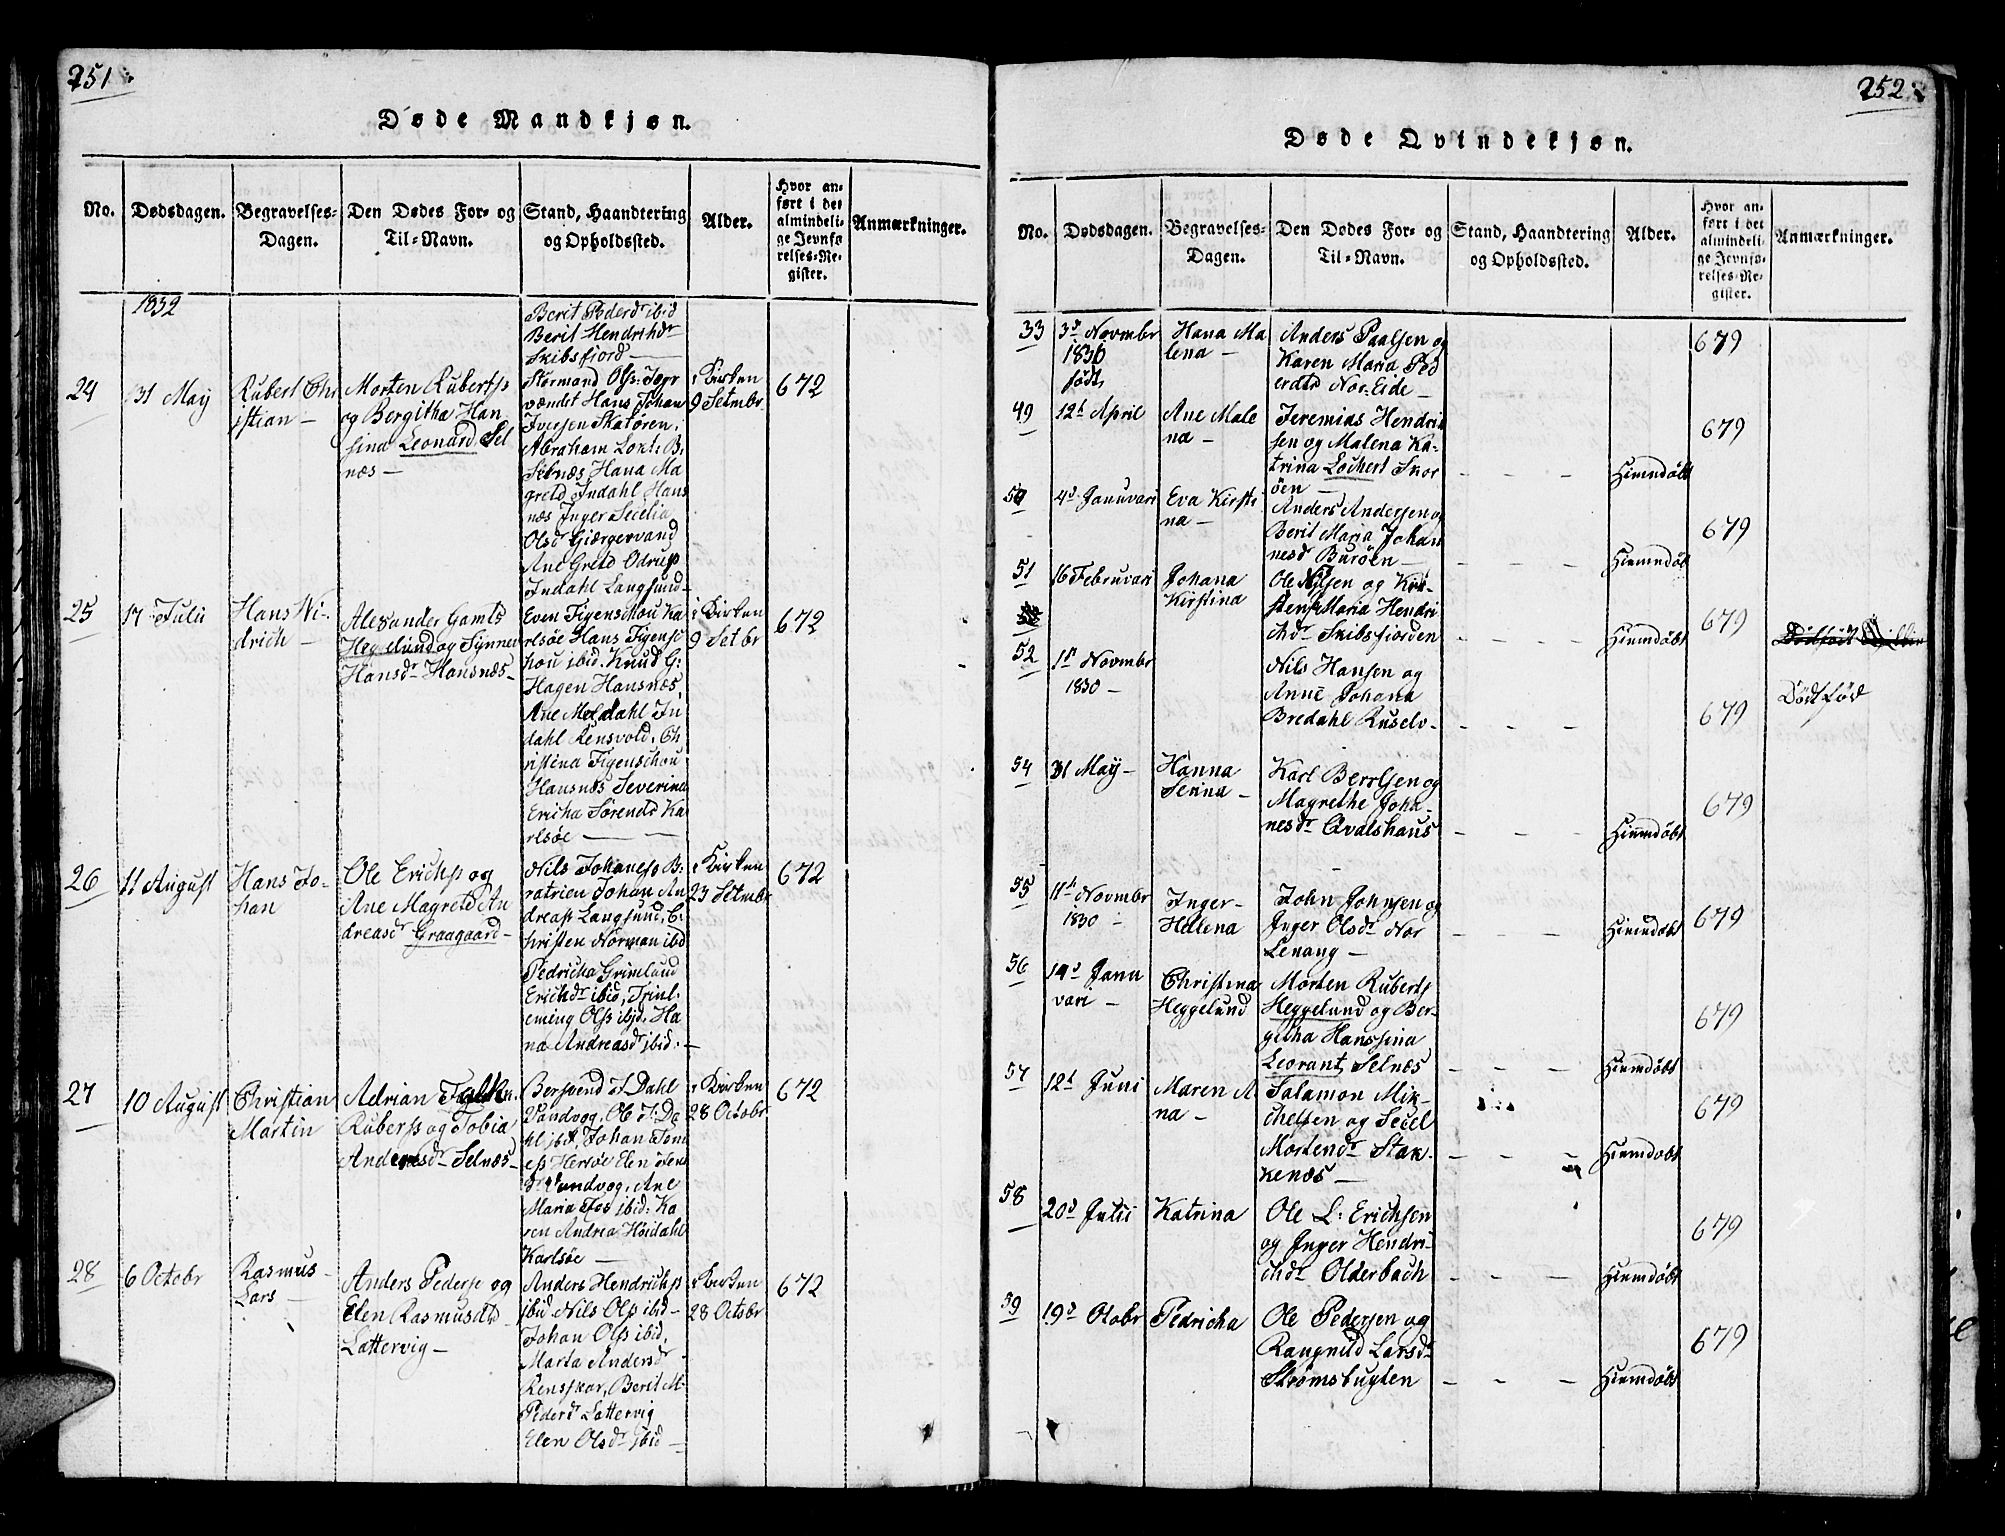 251
Døde Mandkjøn.
No.
Dødsdagen.
Begravelses-
Dagen.
Den Dødes For- og
Til-Navn.
Stand, Haandtering
og Opholdssted.
Alder.
Hvor an-
ført i det
almindeli-
ge Jevnfø
relses-Re-
gister.
Anmærkninger.
1832
Berit Pederdr ibid
Berit Hendrihdr
Skibsfjord
24
31 May
Rubert Chr
istian
Morten Ruberts
og Bergitha Han
sina Leonard Sel
næs
vændet Hans Johan
Iversen Skatøren,
Abraham
Selnæs, Hana Ma
gretd Indahl Hans
næs Inger Secelia
Olsdr
Ane Gretd
Indahl Langsund
i Kirken
9 Setmbr
672
25
17 Julii
Hans
drich
Alexander Gamts
Heggelund og Synner
Hansdr Hansnæs
Even Figenschou Ka
rlsöe Hans Figensc
hou ibid. Knud G:
Hagen Hansnæs,
Ane Meldahl In
dahl Rensvold, Ch
ristina Figenschou
Hansnæs Severina
Ericha Sörends Ka
rlsöe
i Kirken
9 Setbr
672
26
11 August
Hans Jo-
han
Ole Erichs og
Ane Magretd An
dreasdr Graagaard
Nils Johanes B:
ratrien Johan An
dreas Langsund, C:
hristen Norman ibd
Pedricha Grimlund
Erichdr ibid,
Ols ibid, Ha
na Andreasdr ibid.
i Kirken
23 Setmbr
672
27
10 August
Christian
Martin
Adrian Falk
Ruberts og Tobia
Andersdr Selnæs
Bersvend J. Dahl
Vandvog, Ole J: Da
hl ibd, Johan Tom
es Hersöe Elen Jens
dr Vandvog, Ane
Maria Fos ibid: Ka
ren Andrea Höidahl
Karlsöe
i Kirken
28 Octobr
672
28
6 Octobr
Rasmus
Lars
Anders Peders og
Elen Rasmusdtr
Lattervig
Anders Hendrichs
ibid Nils Ols ibid
Johan Ols ibid,
Marta Andersdr
Rensskar, Berit M.
Pederd Lattervig
Elen Olsdr ibid
i Kirken
28 Octobr
672
252
Døde Qvindekjøn.
No.
Dødsdagen.
Begravelses-
Dagen.
Den Dødes For- og
Til-Navn.
Stand, Haandtering
og Opholdssted.
Alder.
Hvor an-
ført i det
almindeli-
ge Jevnfø-
relses-Re-
gister.
Anmærkninger.
33
3d Novmbr
1830
född
Hana Ma
lena
Anders Paalsen og
Karen Maria Ped
erdtr Nor-Eide
679
49
12t April
Ane Male
na
Jeremias Hendrik
sen og Malena Ka-
trina Lochert Snor
öen
Hiemdöbt
679
50
4d Januvari
Eva Kirsti
na
Anders Andersen og
Berit Maria Johan
nesd Buröen
Hiemdöbt
679
51
16 Februvari
Johana
Kirstina
Ole Nilsen og Kir-
sten Maria Hendri
chdr Skibsfjorden
Hiemdöbt
679
52
1st Novmbr
1830
Nils Hansen og
Anne Johana
Bredahl Ruselv
679
Dödföd
54
31 May
Hanna
Serina
Karl Berrlsen og
Magrethe Joha-
nesdr Qvalshaus
Hiemdöbt
679
55
11t Novmbr
1830
Inger
Helena
John Johnsen og
Inger Olsdr Nor
Lenang
Hiemdöbt
679
56
14d Janu
vari
Christina
Heggelund
Morten Ruberts
Heggelund og Ber-
getha Hanssina
Leorant, Selnæs
Hiemdöbt
679
57
12t Juni
Maren A
na
Salamon Mik-
chelsen og Secel
Mortendr Stak-
kenæs
Hiemdöbt
679
58
20d Julii
Katrina
Ole L: Erichsen
og Inger Hendri-
chdr Olderbach
Hiemdöbt
679
59
19d Otobr
Pedricha
Ole Pedersen og
Rangnild Larsdr
Strömsbugten
Hiemdöbt
679